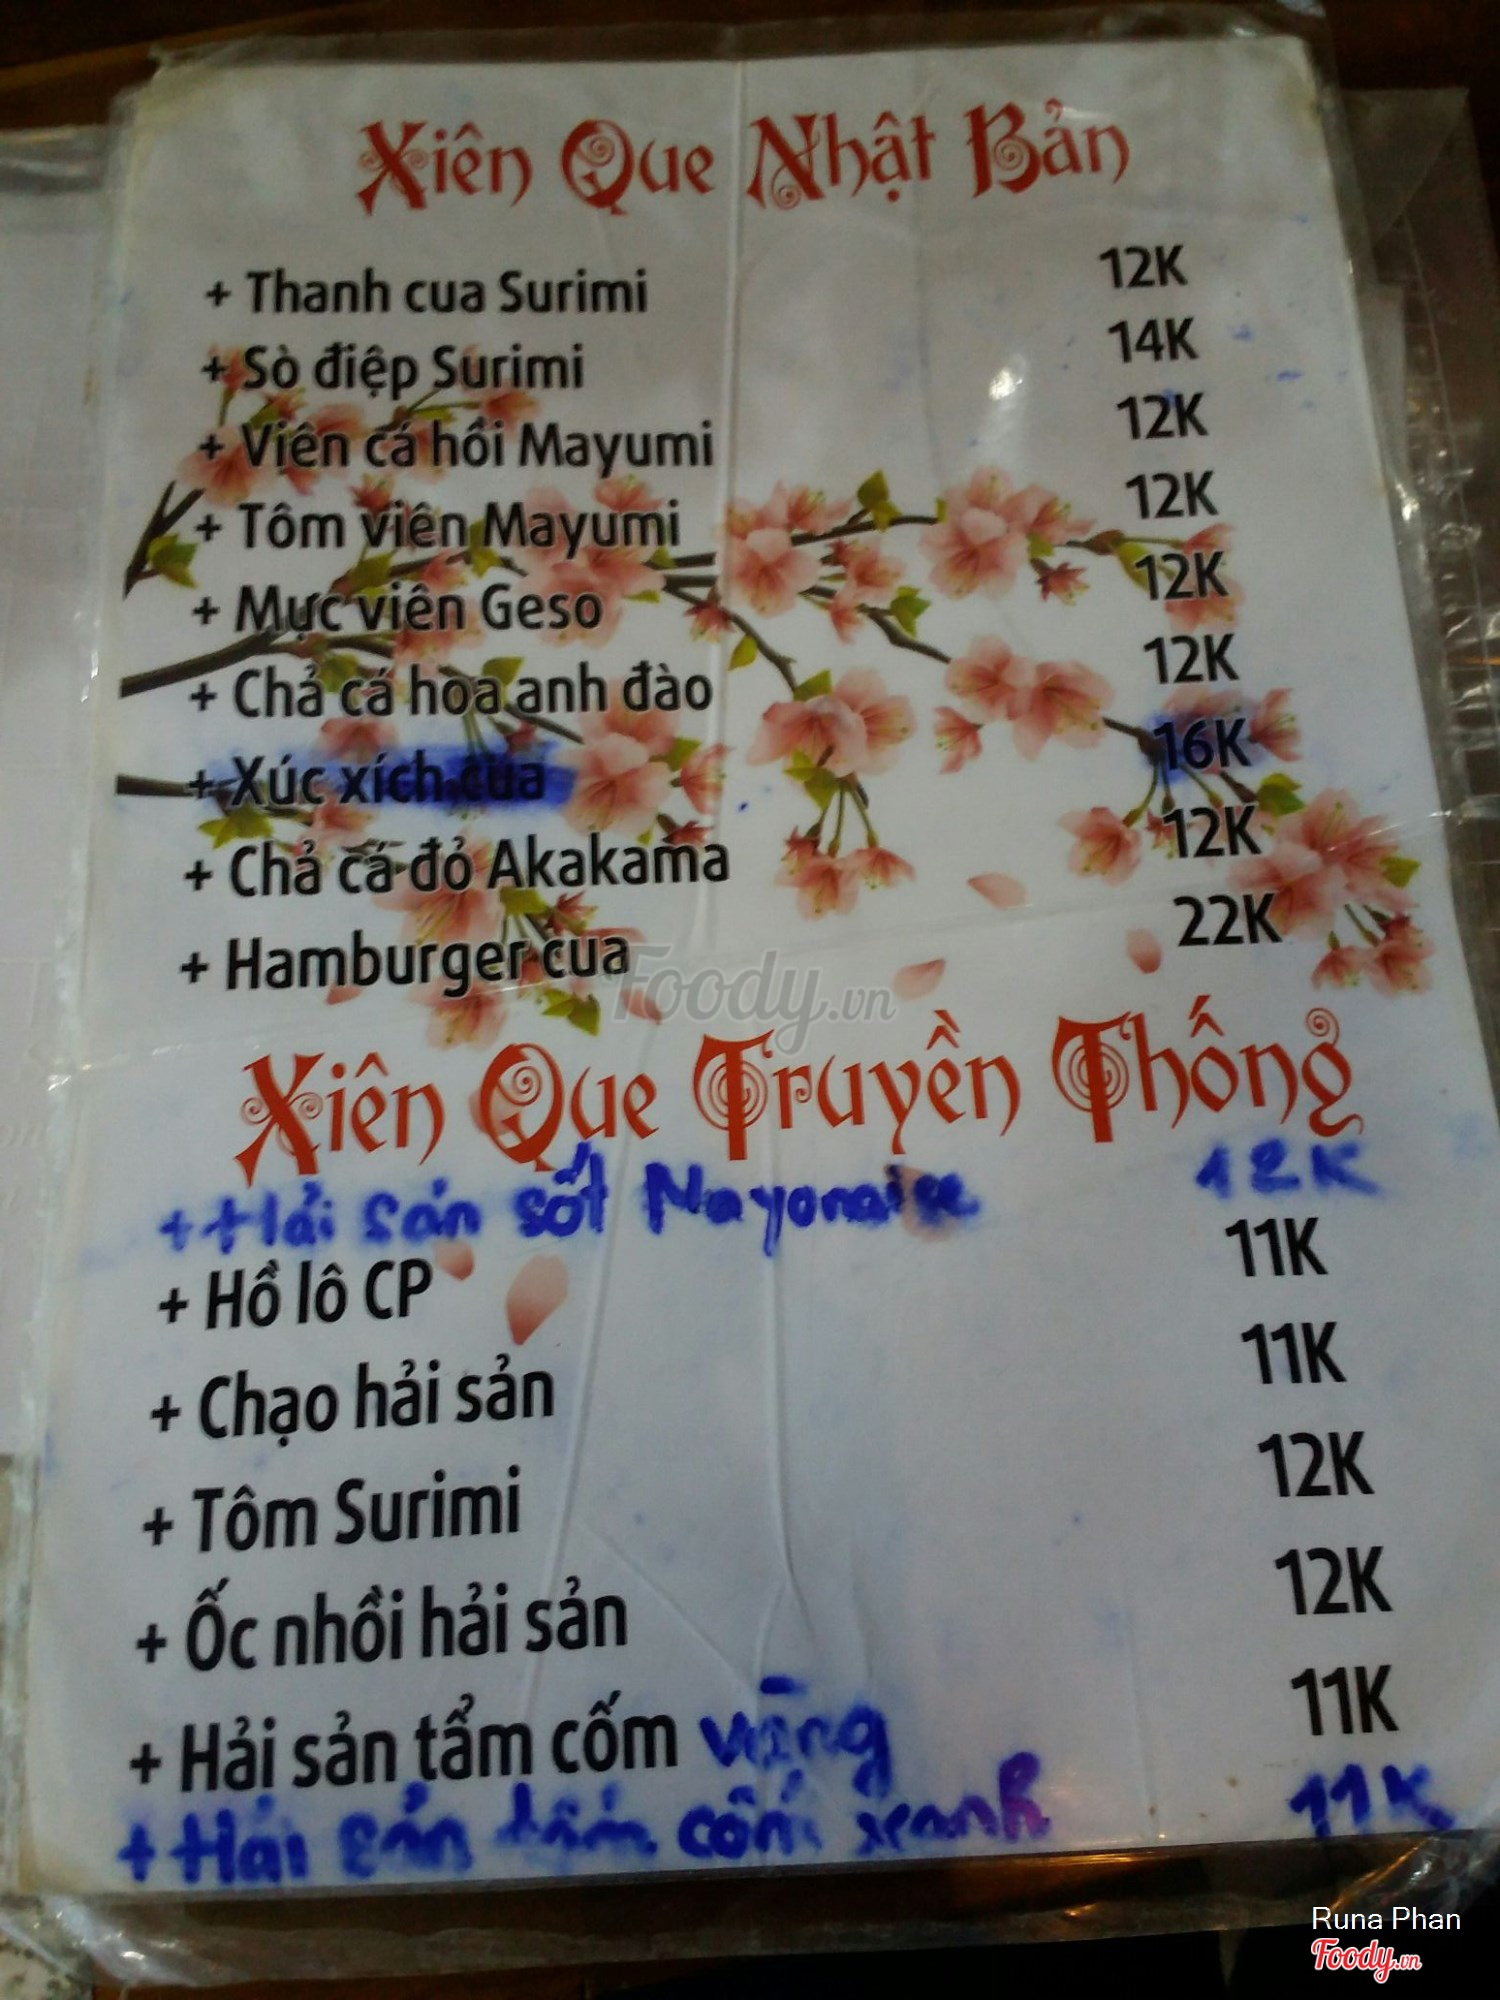 Xiên Que Nhật Bản
+ Thanh cua Surimi 12K
+ Sò điệp Surimi 14K
+ Viên cá hồi Mayumi 12K
+ Tôm viên Mayumi 12K
+ Mực viên Geso 12K
+ Chả cá hoa anh đào 12K
+ Xúc xích cua 16K
+ Chả cá đỏ Akakama 12K
+ Hamburger cua 22K
Foody.vn
Xiên Que Truyền Thống
+ Hải sản sốt Mayonaise 12K
+ Hồ lô CP 11K
+ Chạo hải sản 11K
+ Tôm Surimi 12K
+ Ốc nhồi hải sản 12K
+ Hải sản tẩm cốm vàng 11K
+ Hải sản tẩm cốm xanh 11K
Runa Phan
Foody.vn